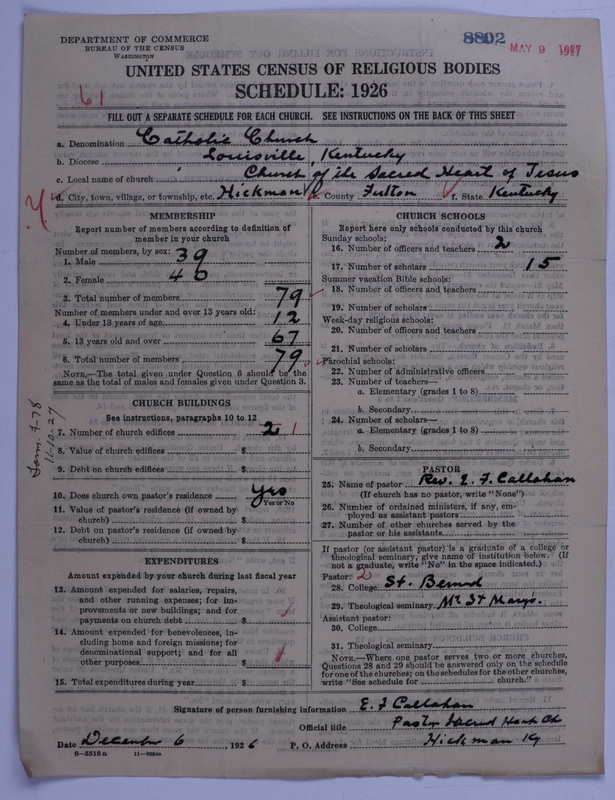 DEPARTMENT OF COMMERCE
BUREAU OF THE CENSUS
WASHINGTON
8802
MAY 9 1927
UNITED STATES CENSUS OF RELIGIOUS BODIES
SCHEDULE: 1926
61
FILL OUT A SEPARATE SCHEDULE FOR EACH CHURCH. SEE INSTRUCTIONS ON THE BACK OF THIS SHEET
a. Denomination Catholic Church
b. Diocese Louisville, Kentucky
c. Local name of church Church of the Sacred Heart of Jesus
d. City, town, village, or township, etc. Hickman e. County Fulton f. State Kentucky
MEMBERSHIP
Report number of members according to definition of
member in your church
Number of members, by sex:
1. Male 39
2. Female 40
3. Total number of members 79
Number of members under and over 13 years old:
4. Under 13 years of age 12
5. 13 years old and over 67
6. Total number of members 79
NOTE.—The total given under Question 6 should be the
same as the total of males and females given under Question 3.
CHURCH BUILDINGS
See instructions, paragraphs 10 to 12
7. Number of church edifices 2 1
8. Value of church edifices $
9. Debt on church edifices $
10. Does church own pastor's residence yes
Yes or No
11. Value of pastor's residence (if owned by
church) $
12. Debt on pastor's residence (if owned by
church) $
11-10-27
EXPENDITURES
Amount expended by your church during last fiscal year
13. Amount expended for salaries, repairs,
and other running expenses; for im-
provements or new buildings; and for
payments on church debt $
14. Amount expended for benevolences, in-
cluding home and foreign missions; for
denominational support; and for all
other purposes $
15. Total expenditures during year $
CHURCH SCHOOLS
Report here only schools conducted by this church
Sunday schools:
16. Number of officers and teachers 2
17. Number of scholars 15
Summer vacation Bible schools:
18. Number of officers and teachers
19. Number of scholars
Week-day religious schools:
20. Number of officers and teachers
21. Number of scholars
Parochial schools:
22. Number of administrative officers
23. Number of teachers—
a. Elementary (grades 1 to 8)
b. Secondary
24. Number of scholars—
a. Elementary (grades 1 to 8)
b. Secondary
PASTOR
25. Name of pastor Rev. E. F. Callahan
(If church has no pastor, write "None")
26. Number of ordained ministers, if any, em-
ployed as assistant pastors
27. Number of other churches served by the
pastor or his assistants
If pastor (or assistant pastor) is a graduate of a college or
theological seminary, give name of institution below. (If
not a graduate, write "No" in the space indicated.)
Pastor: 2
28. College St. Bernard
29. Theological seminary Mt St Marys.
Assistant pastor:
30. College
31. Theological seminary
NOTE.—Where one pastor serves two or more churches,
Questions 28 and 29 should be answered only on the schedule
for one of the churches; on the schedules for the other churches,
write "See schedule for church."
Signature of person furnishing information E. F Callahan
Official title Pastor Sacred Heart Ch
Date December 6 1926 P. O. Address Hickman Ky
8-5518a